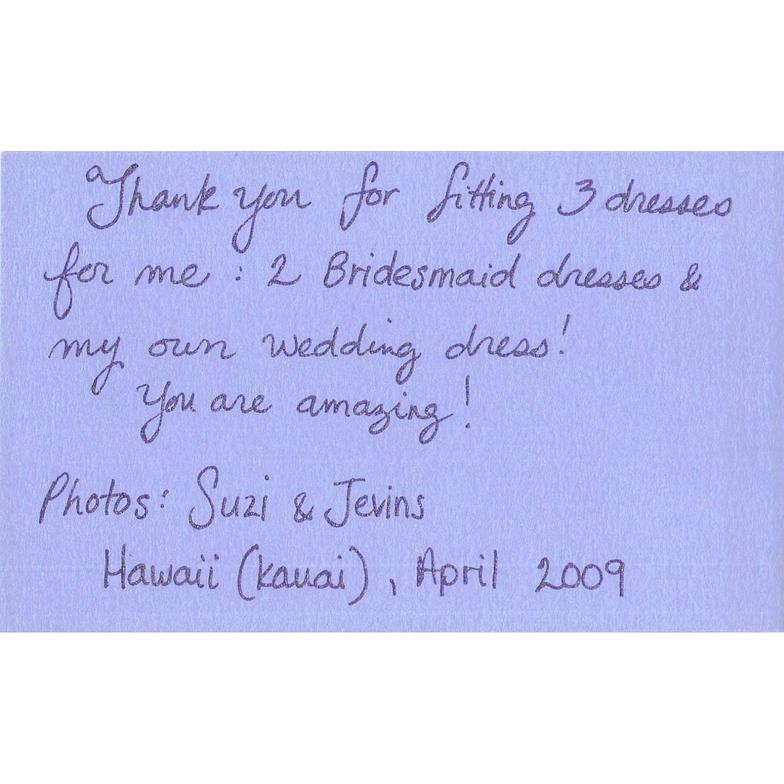 Thank you for fitting 3 dresses
for me : 2 Bridesmaid dresses &
my own wedding dress!
You are amazing!
Photos: Suzi & Jevins
Hawaii (Kauai), April 2009